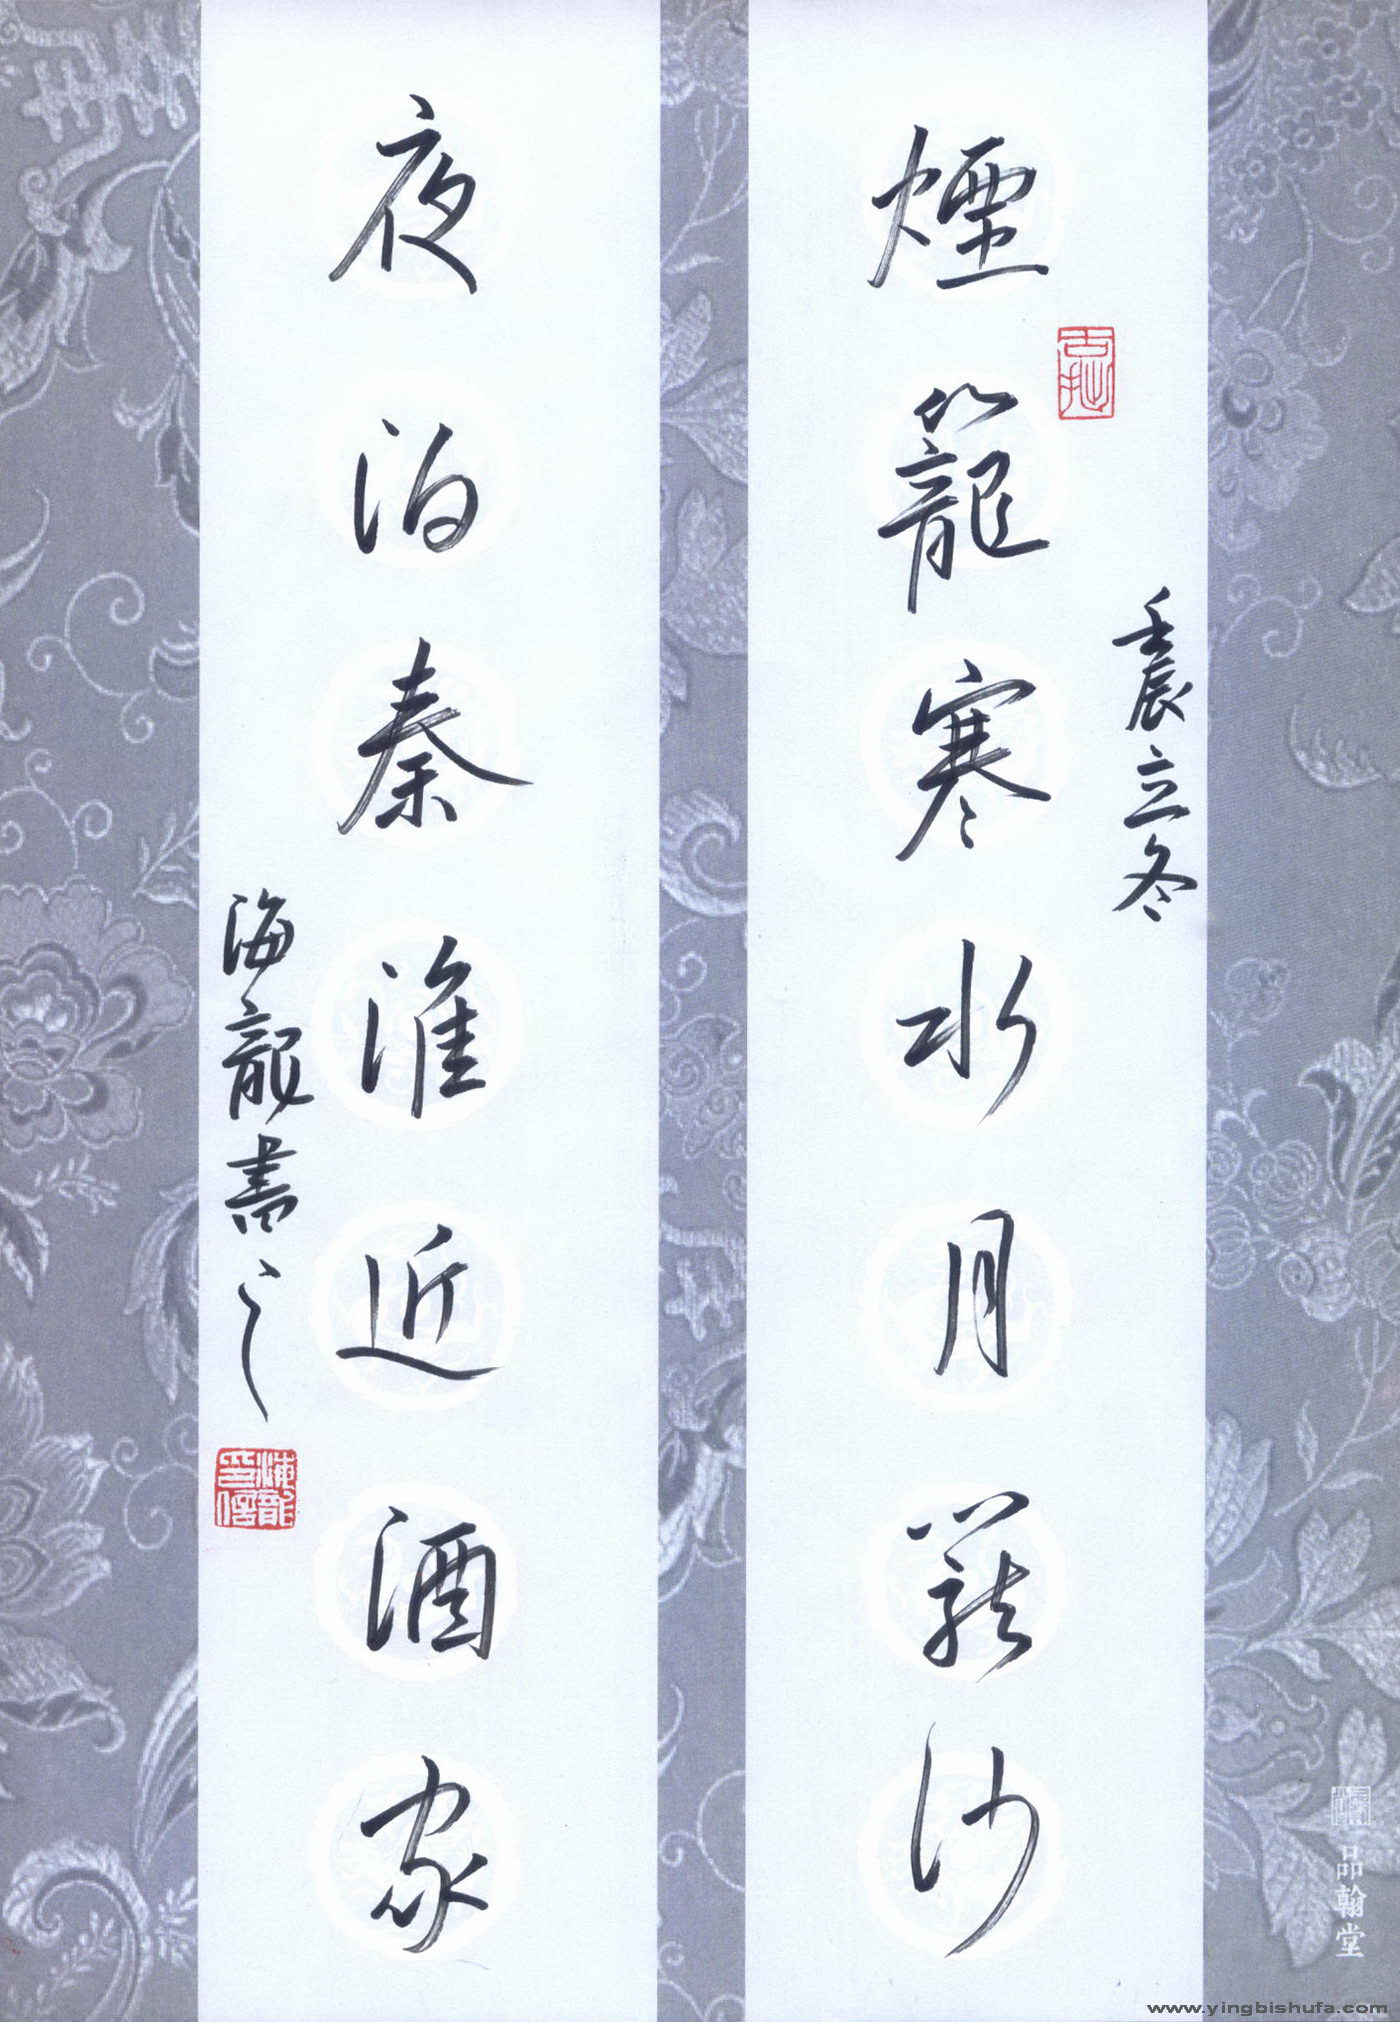 煙籠寒水月籠沙
壬辰立冬
夜泊秦淮近酒家
海龍書之
海龍印信
品翰堂
www.yingbishufa.com